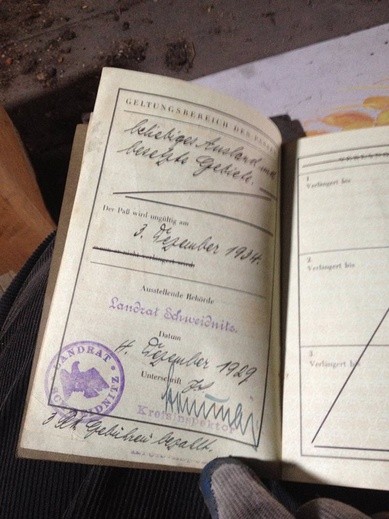 GELTUNGSBEREICH DES PASSES
beliebiges Ausland und
besetzte Gebiete.
Der Paß wird ungültig am
3. Dezember 1934.
wenn er nicht verlängert wird.
Ausstellende Behörde
Landrat Schweidnitz.
Datum
4. Dezember 1929
Unterschrift
Kreisinspektor
LANDRAT * SCHWEIDNITZ *
3 RM Gebühren bezahlt.
1
Verlängert bis
2
Verlängert bis
3
Verlängert bis